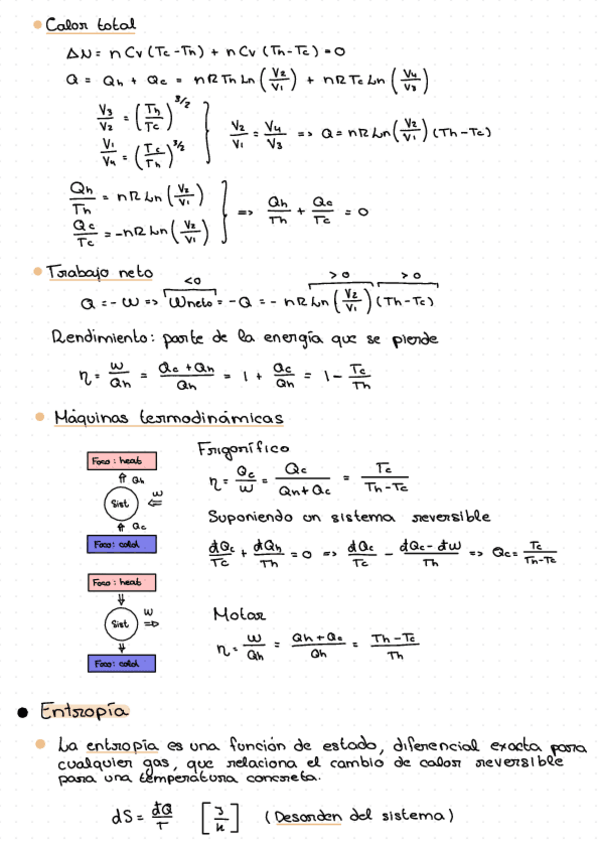 Calor total
ΔU = nCv(Tc-Th) + nCv(Th-Tc) = 0
Q = Qh + Qc = nRTh Ln(V2/V1) + nRTc Ln(V4/V3)
V3/V2 = (Th/Tc)^3/2
V1/V4 = (Tc/Th)^3/2
V2/V1 = V4/V3 => Q = nRLn(V2/V1)(Th-Tc)
Qh/Th = nRLn(V2/V1)
Qc/Tc = -nRLn(V2/V1)
=> Qh/Th + Qc/Tc = 0
Trabajo neto
<0 >0 >0
Q = -W => Wneto = -Q = - nRLn(V2/V1)(Th-Tc)
Rendimiento: parte de la energía que se pierde
η = W/Qh = Qc+Qh/Qh = 1 + Qc/Qh = 1 - Tc/Th
Máquinas termodinámicas
Foco: heat
Qh
Sist
W
Qc
Foco: cold
Frigorífico
η = Qc/W = Qc/Qh+Qc = Tc/Th-Tc
Suponiendo un sistema reversible
đQc/Tc + đQh/Th = 0 => đQc/Tc - đQc-đW/Th => Qc = Tc/Th-Tc
Foco: heat
Sist
W
Foco: cold
Motor
η = W/Qh = Qh+Qc/Qh = Th-Tc/Th
Entropía
La entropía es una función de estado, diferencial exacta para
cualquier gas, que relaciona el cambio de calor reversible
para una temperatura concreta.
dS = đQ/T [J/K] (Desorden del sistema)